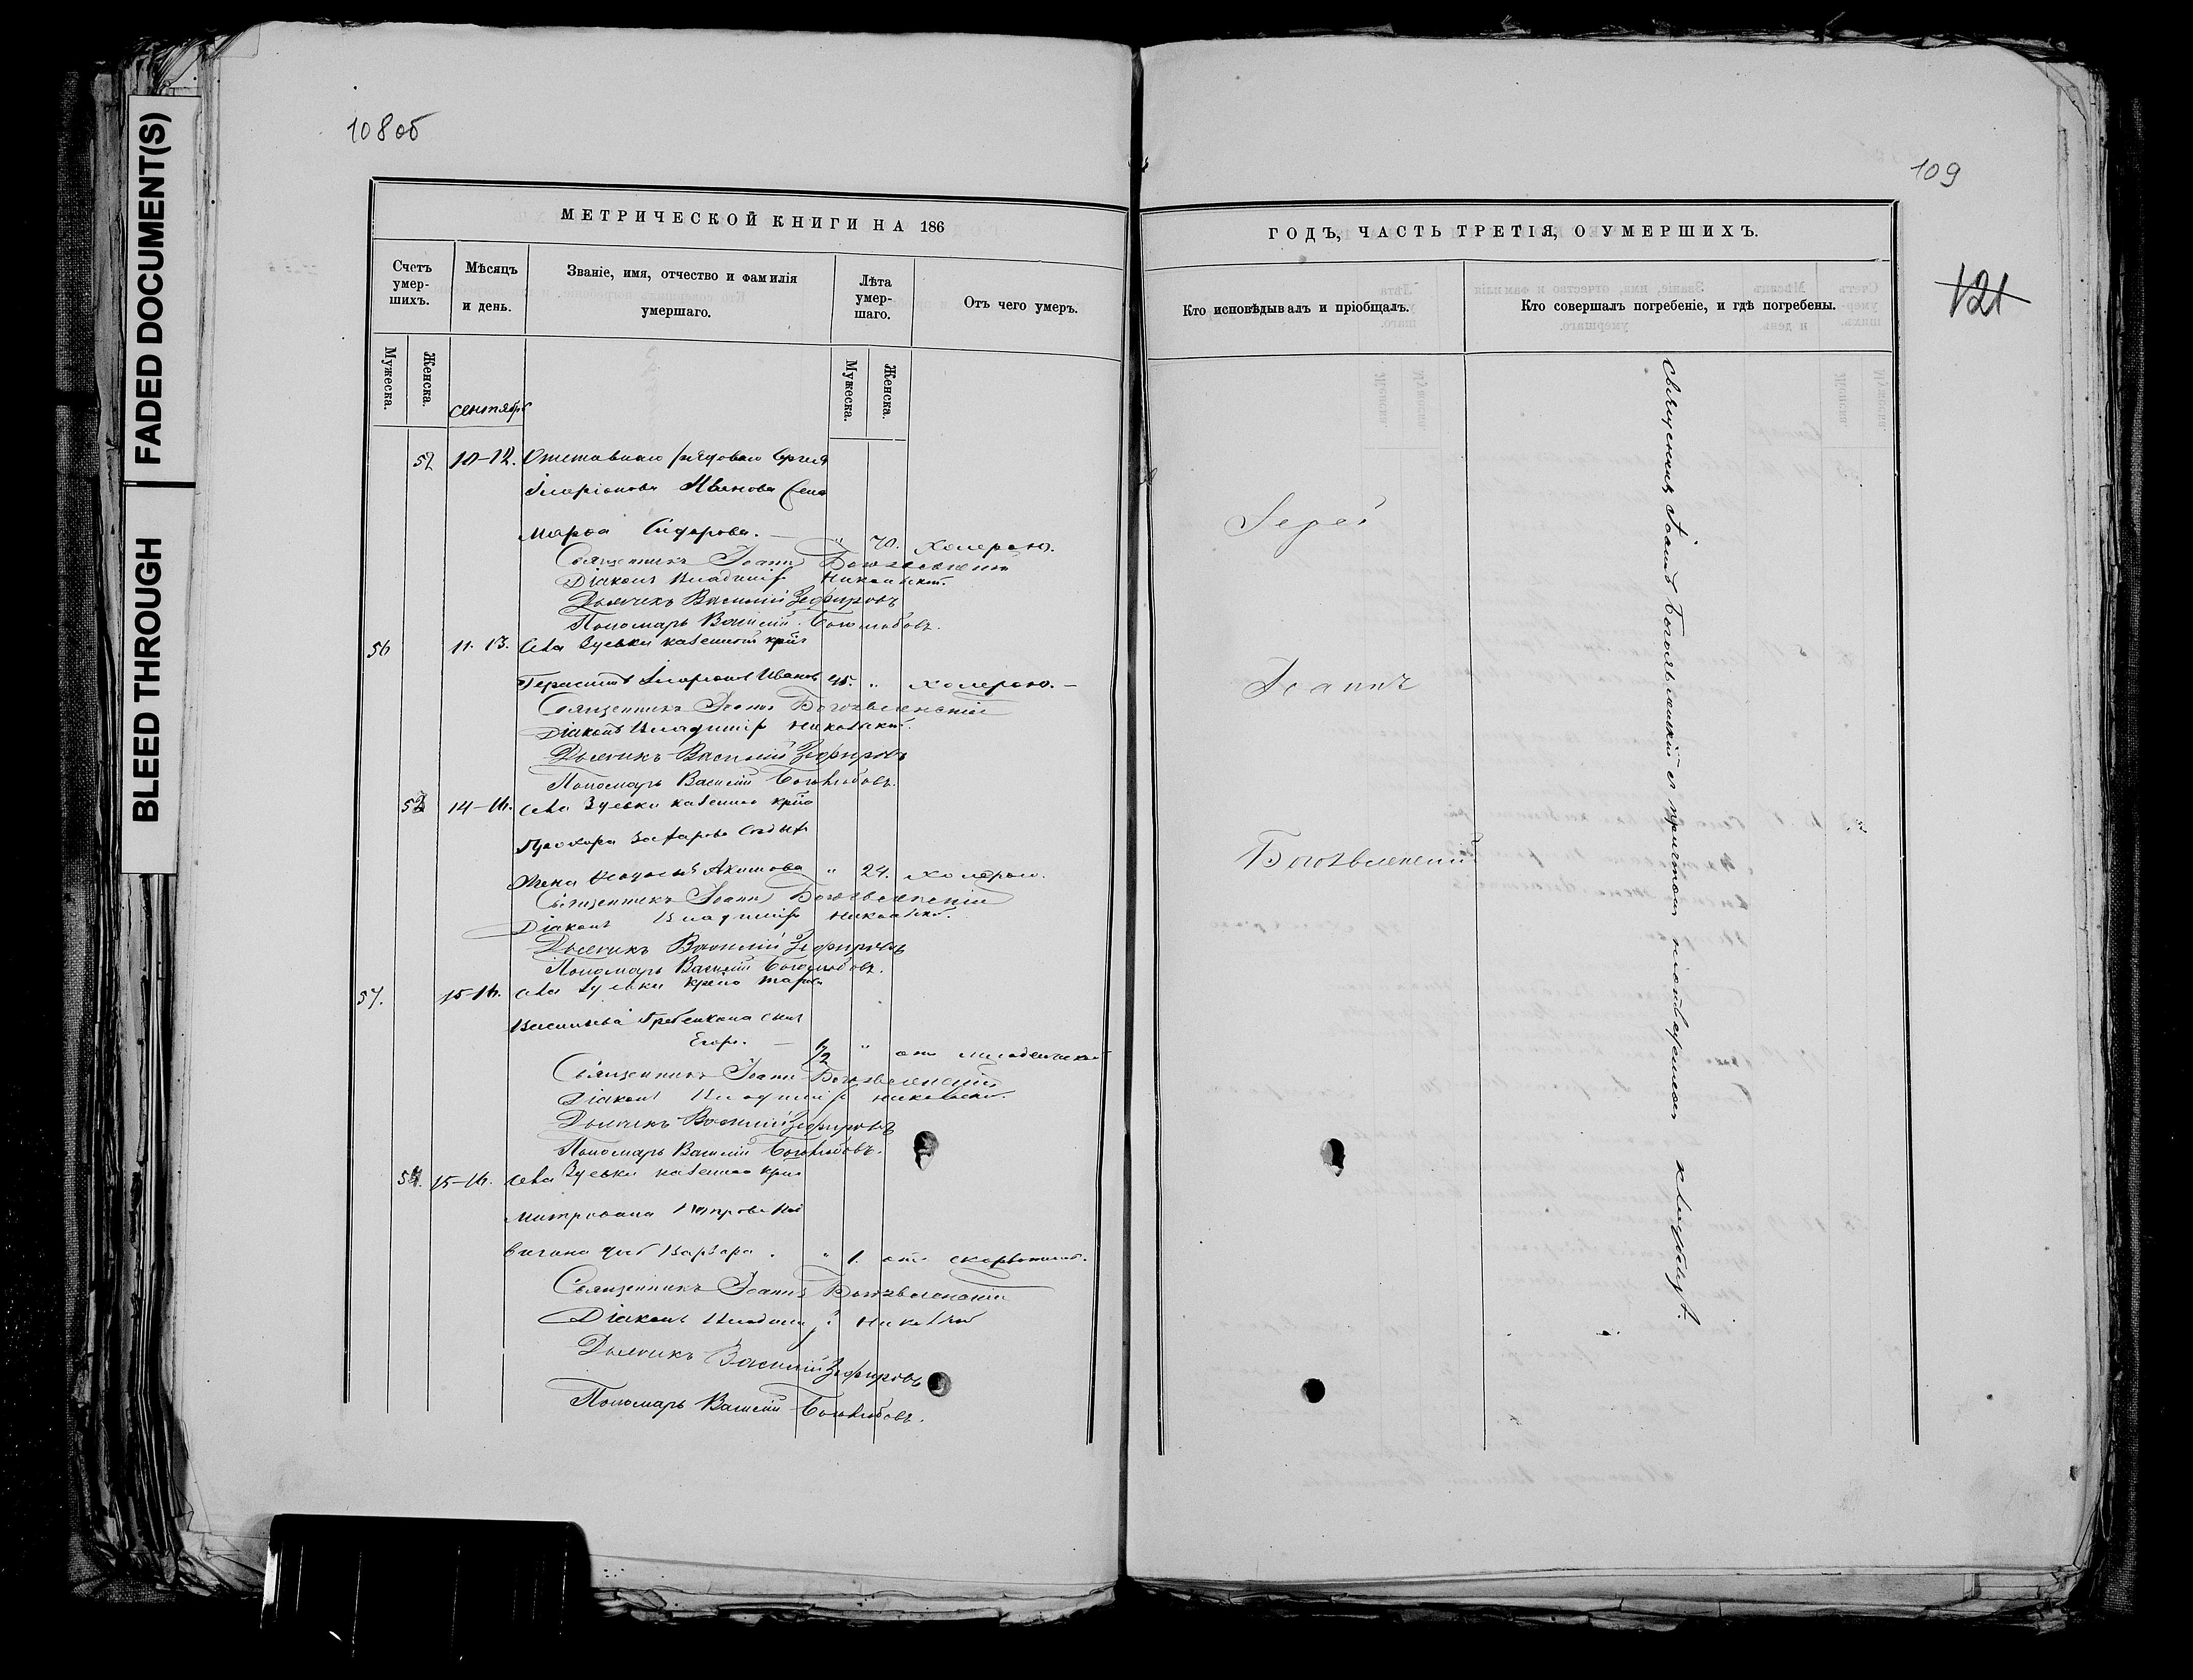 FADED DOCUMENT(S)
BLEED THROUGH
108об
МЕТРИЧЕСКОЙ КНИГИ НА 186
Счетъ умер-шихъ.
Мѣсяцъ и день.
Званіе, имя, отчество и фамилія умершаго.
Лѣта умер-шаго.
Отъ чего умеръ.
Мужеска.
Женска.
Мужеска.
Женска.
сентябрь
52 10-12. Отставнаго рядоваго Сергея
Иларіонова Иванова жена
Марѳа Сидорова. — " 70. холерою.
Священникъ Іоаннъ Богоявленскій
Діаконъ Владиміръ Никольскій.
Дьячикъ Василій Зефировъ
Пономарь Василій Боголюбовъ.
56 11. 13. села Зуевки казенной
Герасимъ Иларіоновъ Ивановъ 45. " холерою. —
Священникъ Іоаннъ Богоявленскій
Діаконъ Владиміръ Никольскій.
Дьячикъ Василій Зефировъ
Пономарь Василій Боголюбовъ.
53 14-16. села Зуевки казеннаго
Прохора Захарова
жена Акимова " 24. холерою.
Священникъ Іоаннъ Богоявленскій
Діаконъ Владиміръ Никольскій.
Дьячикъ Василій Зефировъ
Пономарь Василій Боголюбовъ.
57. 15-16. села Зуевки
Васильева Гребенкина сынъ
Егоръ. — 1/2 " отъ младенческой
Священникъ Іоаннъ Богоявленскій
Діаконъ Владиміръ Никольскій.
Дьячикъ Василій Зефировъ
Пономарь Василій Боголюбовъ.
54. 15-16. села Зуевки казеннаго
Митрофана
дочь Варвара. " 1. отъ
Священникъ Іоаннъ Богоявленскій
Діаконъ Владиміръ Никольскій
Дьячикъ Василій Зефировъ
Пономарь Василій Боголюбовъ.
109
121
ГОДЪ, ЧАСТЬ ТРЕТІЯ, О УМЕРШИХЪ.
Кто исповѣдывалъ и пріобщалъ.
Кто совершалъ погребеніе, и гдѣ погребены.
Іерей
Іоаннъ
Богоявленскій
Священникъ Іоаннъ Богоявленскій съ причтомъ на отведенномъ кладбищѣ.